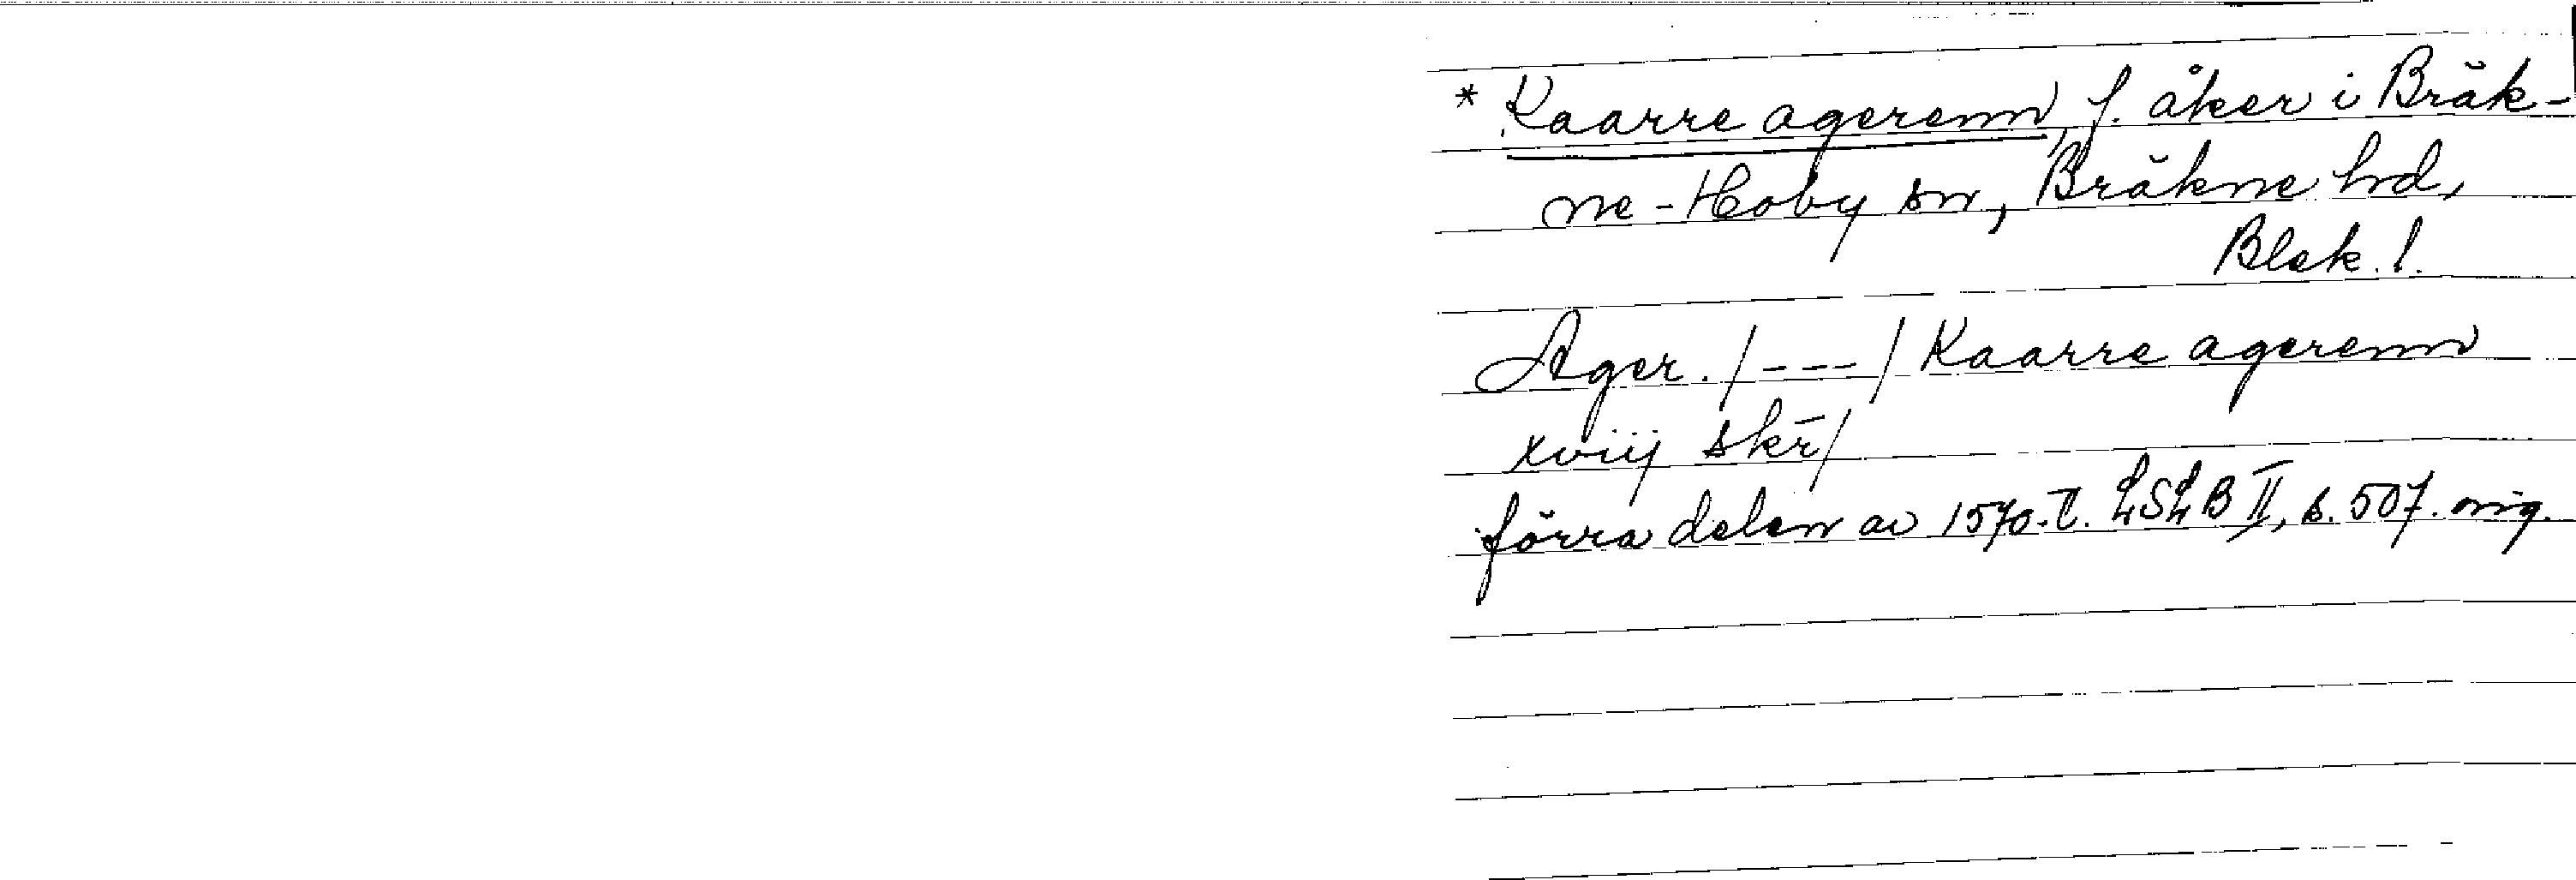 * Kaarre agerenn, f. åker i Bräk-
ne-Hoby sn, Bräkne hd,
Blek. l.
Ager. /---/ Kaarre agerenn
xviij skr̄/
förra delen av 1570-t. LSLB II, s. 507. orig.